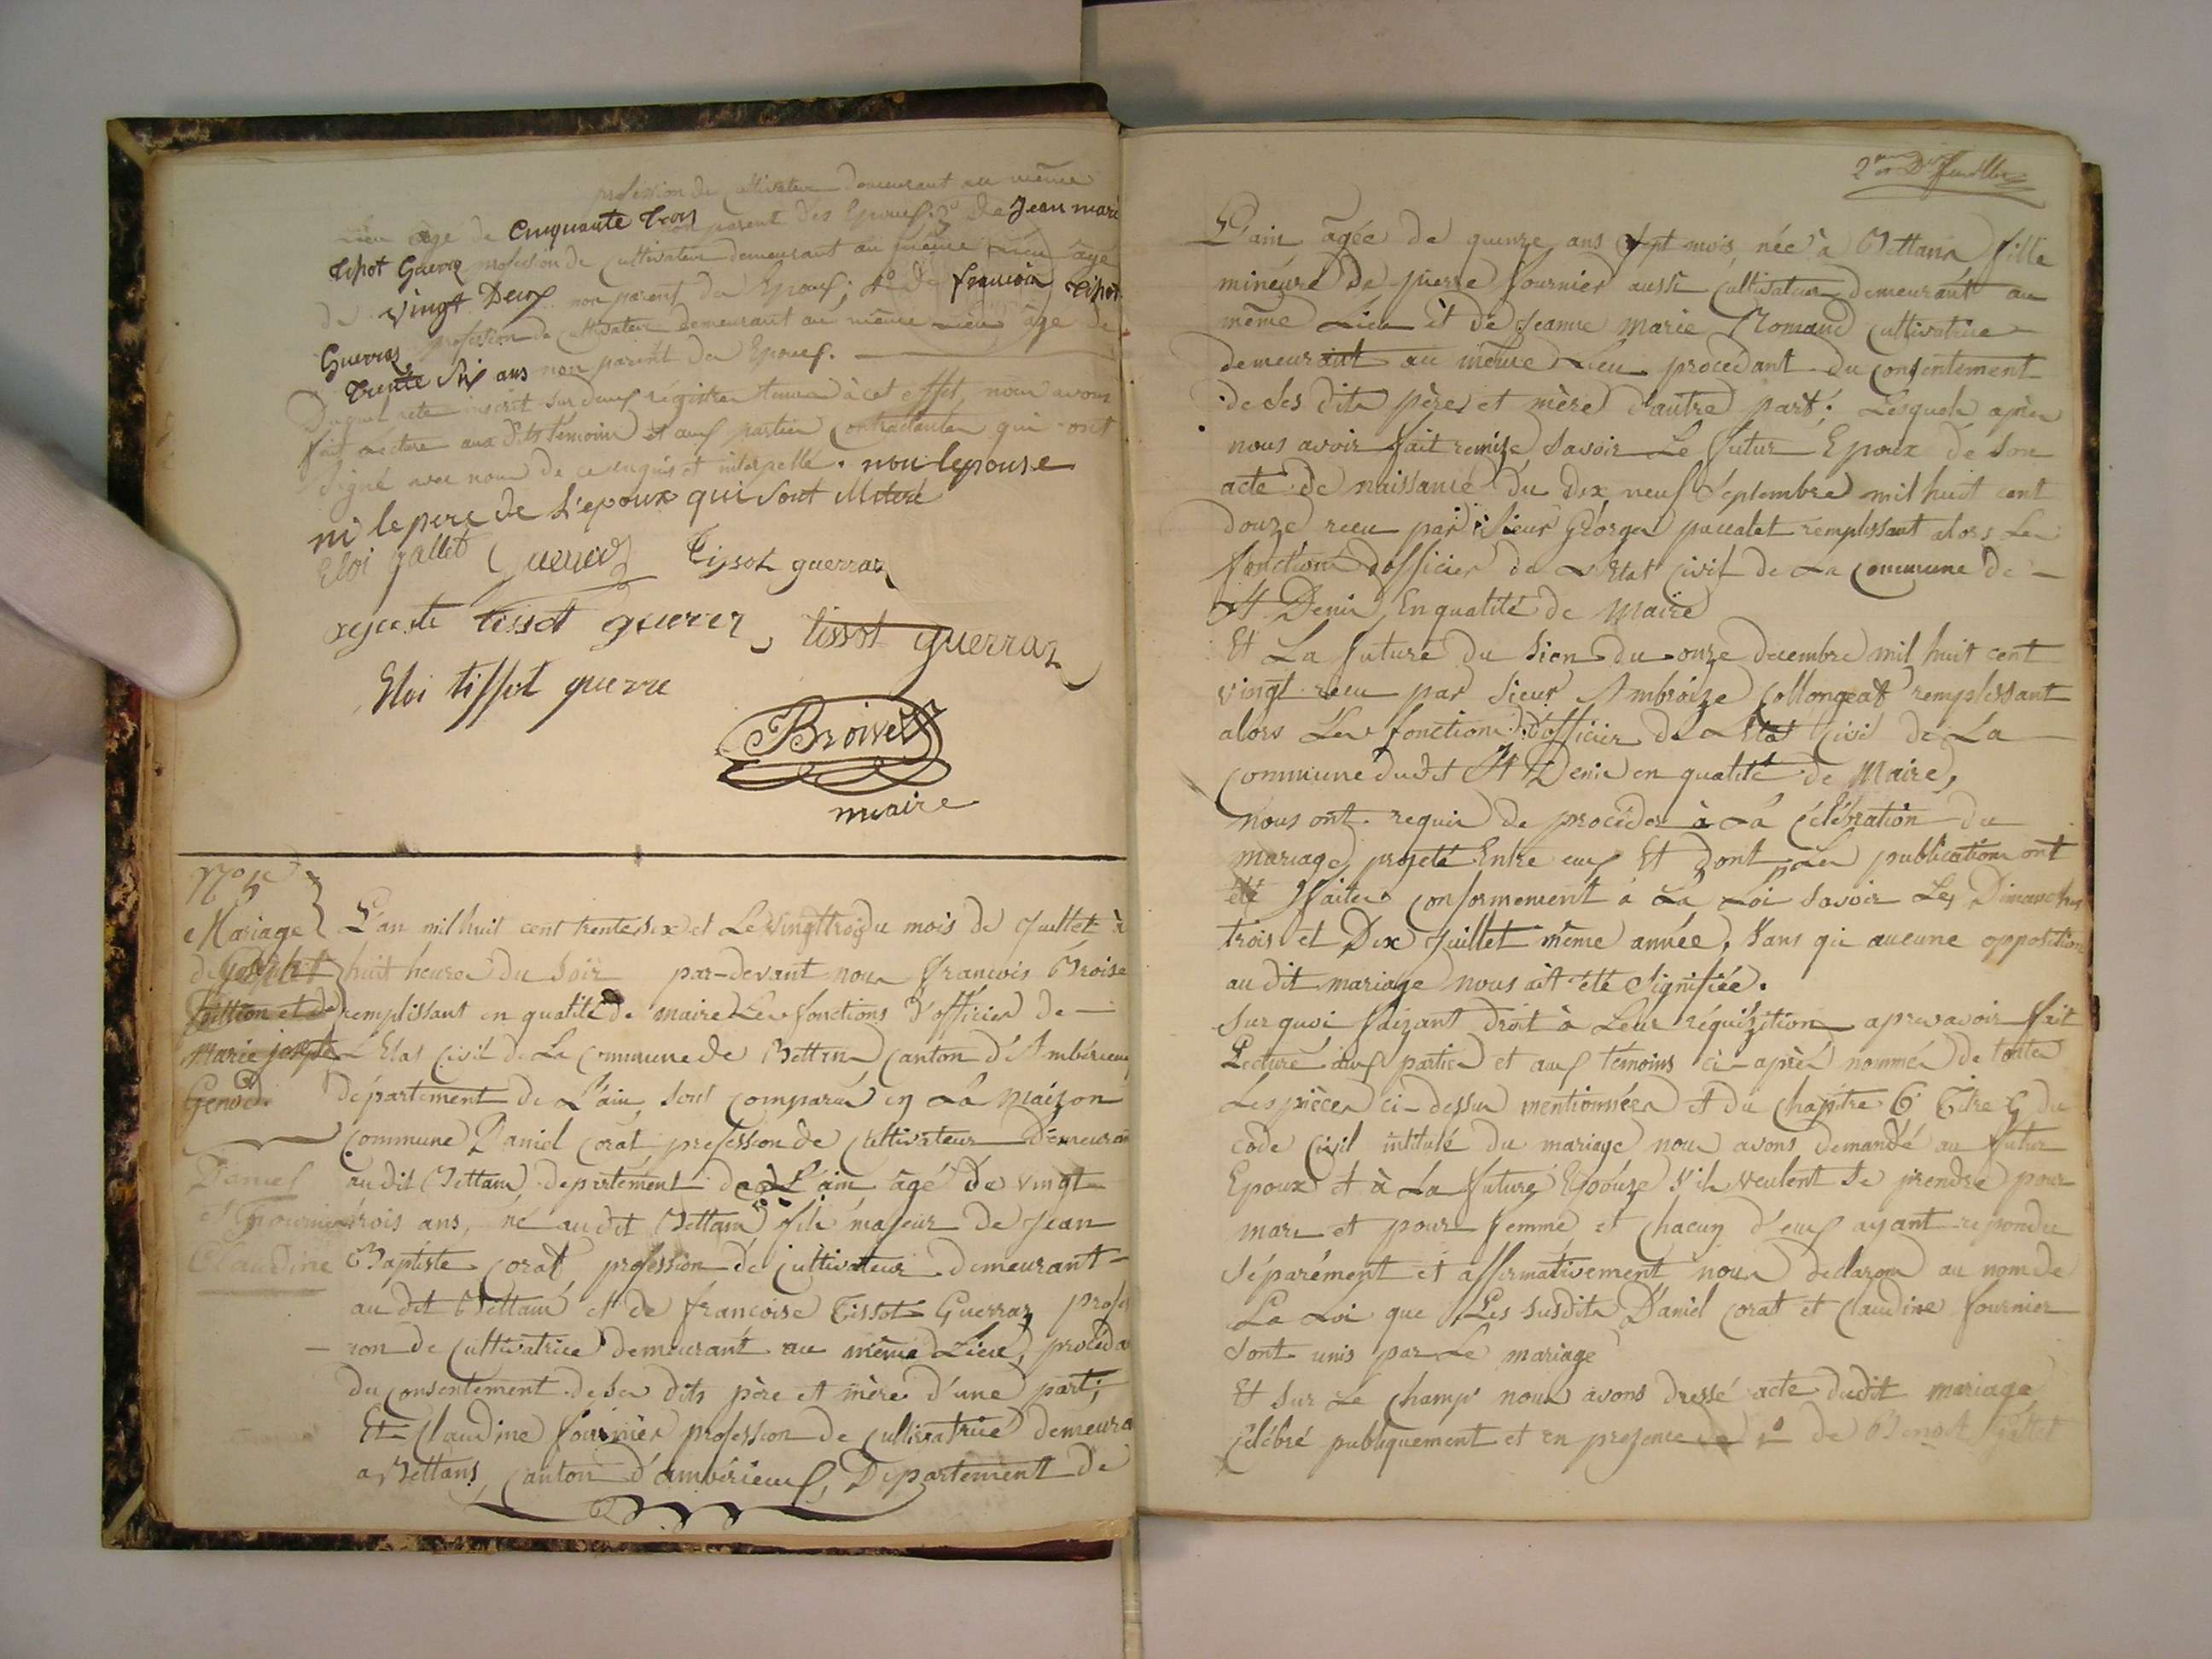 profession de cultivateur demeurant au même
Lieu age de Cinquante trois non parent des Epoux; 3° De Jean marie
tipot Guerraz profession de cultivateur demeurant au même Lieu âgé
de vingt Deux non parent des Epoux; 4° de francois tipot
Guerraz profession de cultivateur demeurant au même Lieu âge de
trente six ans non parent des Epoux.
Duquel acte inscrit sur deux régistres tenus à cet effet, nous avons
fait lecture aux dits témoins et aux parties contractantes qui ont
signé avec nous de ce enquis et interpellé. non lepouse
ni le pere de L'epoux qui sont illiteré
Eloi gallet Tissot guerraz
tissot guerrer tissot guerraz
Eloi tissot guerre
Broise
maire
N° 5
Mariage L'an mil huit cent trente six et Le vingt trois du mois de Juillet à
de Joseph huit heures du soir par-devant nous francois Broise
et de remplissant en qualité de maire Les fonctions d'officier de
Marie joseph L'Etat civil de La commune de Bettan canton d'Ambérieux
Genod. département de L'ain, sont comparus en La Maison
commune Daniel Corat, profession de cultivateur Demeurant
Daniel audit Bettan département de L'ain âgé de vingt
et Fournier trois ans, né audit Bettan, fils majeur de Jean
Claudine Baptiste Corat profession de cultivateur Demeurant
au dit Bettan et de francoise Tissot Guerraz profes
ion de cultivatrice demeurant au même Lieu, procéda
du consentement de ses dits père et mère d'une part;
Et Claudine fournier profession de cultivatrice demeura
a Bettans, canton d'ambérieux, Département de
2me et Der feuillet
L'ain âgée de quinze ans sept mois, née à Bettans fille
mineure de pierre fournier aussi cultivateur demeurant au
même Lieu et de Jeanne Marie Romand cultivatrice
demeurant au même Lieu procedant du consentement
de ses dits père et mère d'autre part. Lesquels après
nous avoir fait remise Savoir Le futur Epoux de son
acte de naissance du dix neuf Septembre mil huit cent
douze recu par sieur Géorges paccalet remplissant alors Les
fonctions d'officier de L'Etat civil de La Commune de
St Denis, En qualité de Maire
Et La future du sien du onze decembre mil huit cent
vingt recu par Sieur Ambroize Collongeat remplissant
alors Les fonctions d'officier de L'Etat Civil de La
commune dudit St Denis en qualité de Maire,
nous ont requis de procéder à La célébration du
mariage projeté Entre eux Et Dont Les publications ont
été faites conformement à La Loi Savoir Les Dimanches
trois et Dix Juillet même année, Sans qu aucune opposition
au dit mariage nous ait été Signifiée.
Sur quoi faizant droit à Leur réquizition après avoir fait
Lecture aux parties et aux témoins ci-après nommés de toutes
Les pièces ci-dessus mentionnées et du chapitre 6 Titre 5 du
code Civil intitulé du mariage nous avons demandé au futur
Epoux et à La future Epouze s'ils veulent se prendre pour
mari et pour femme, et chacun d'eux ayant repondu
séparément et affirmativement nous déclarons au nom de
La Loi que Les susdits Daniel Corat et Claudine fournier
sont unis par Le mariage
Et sur Le champ nous avons dressé acte dudit mariage
célébré publiquement et en presence de 1° de Benoit Gallet